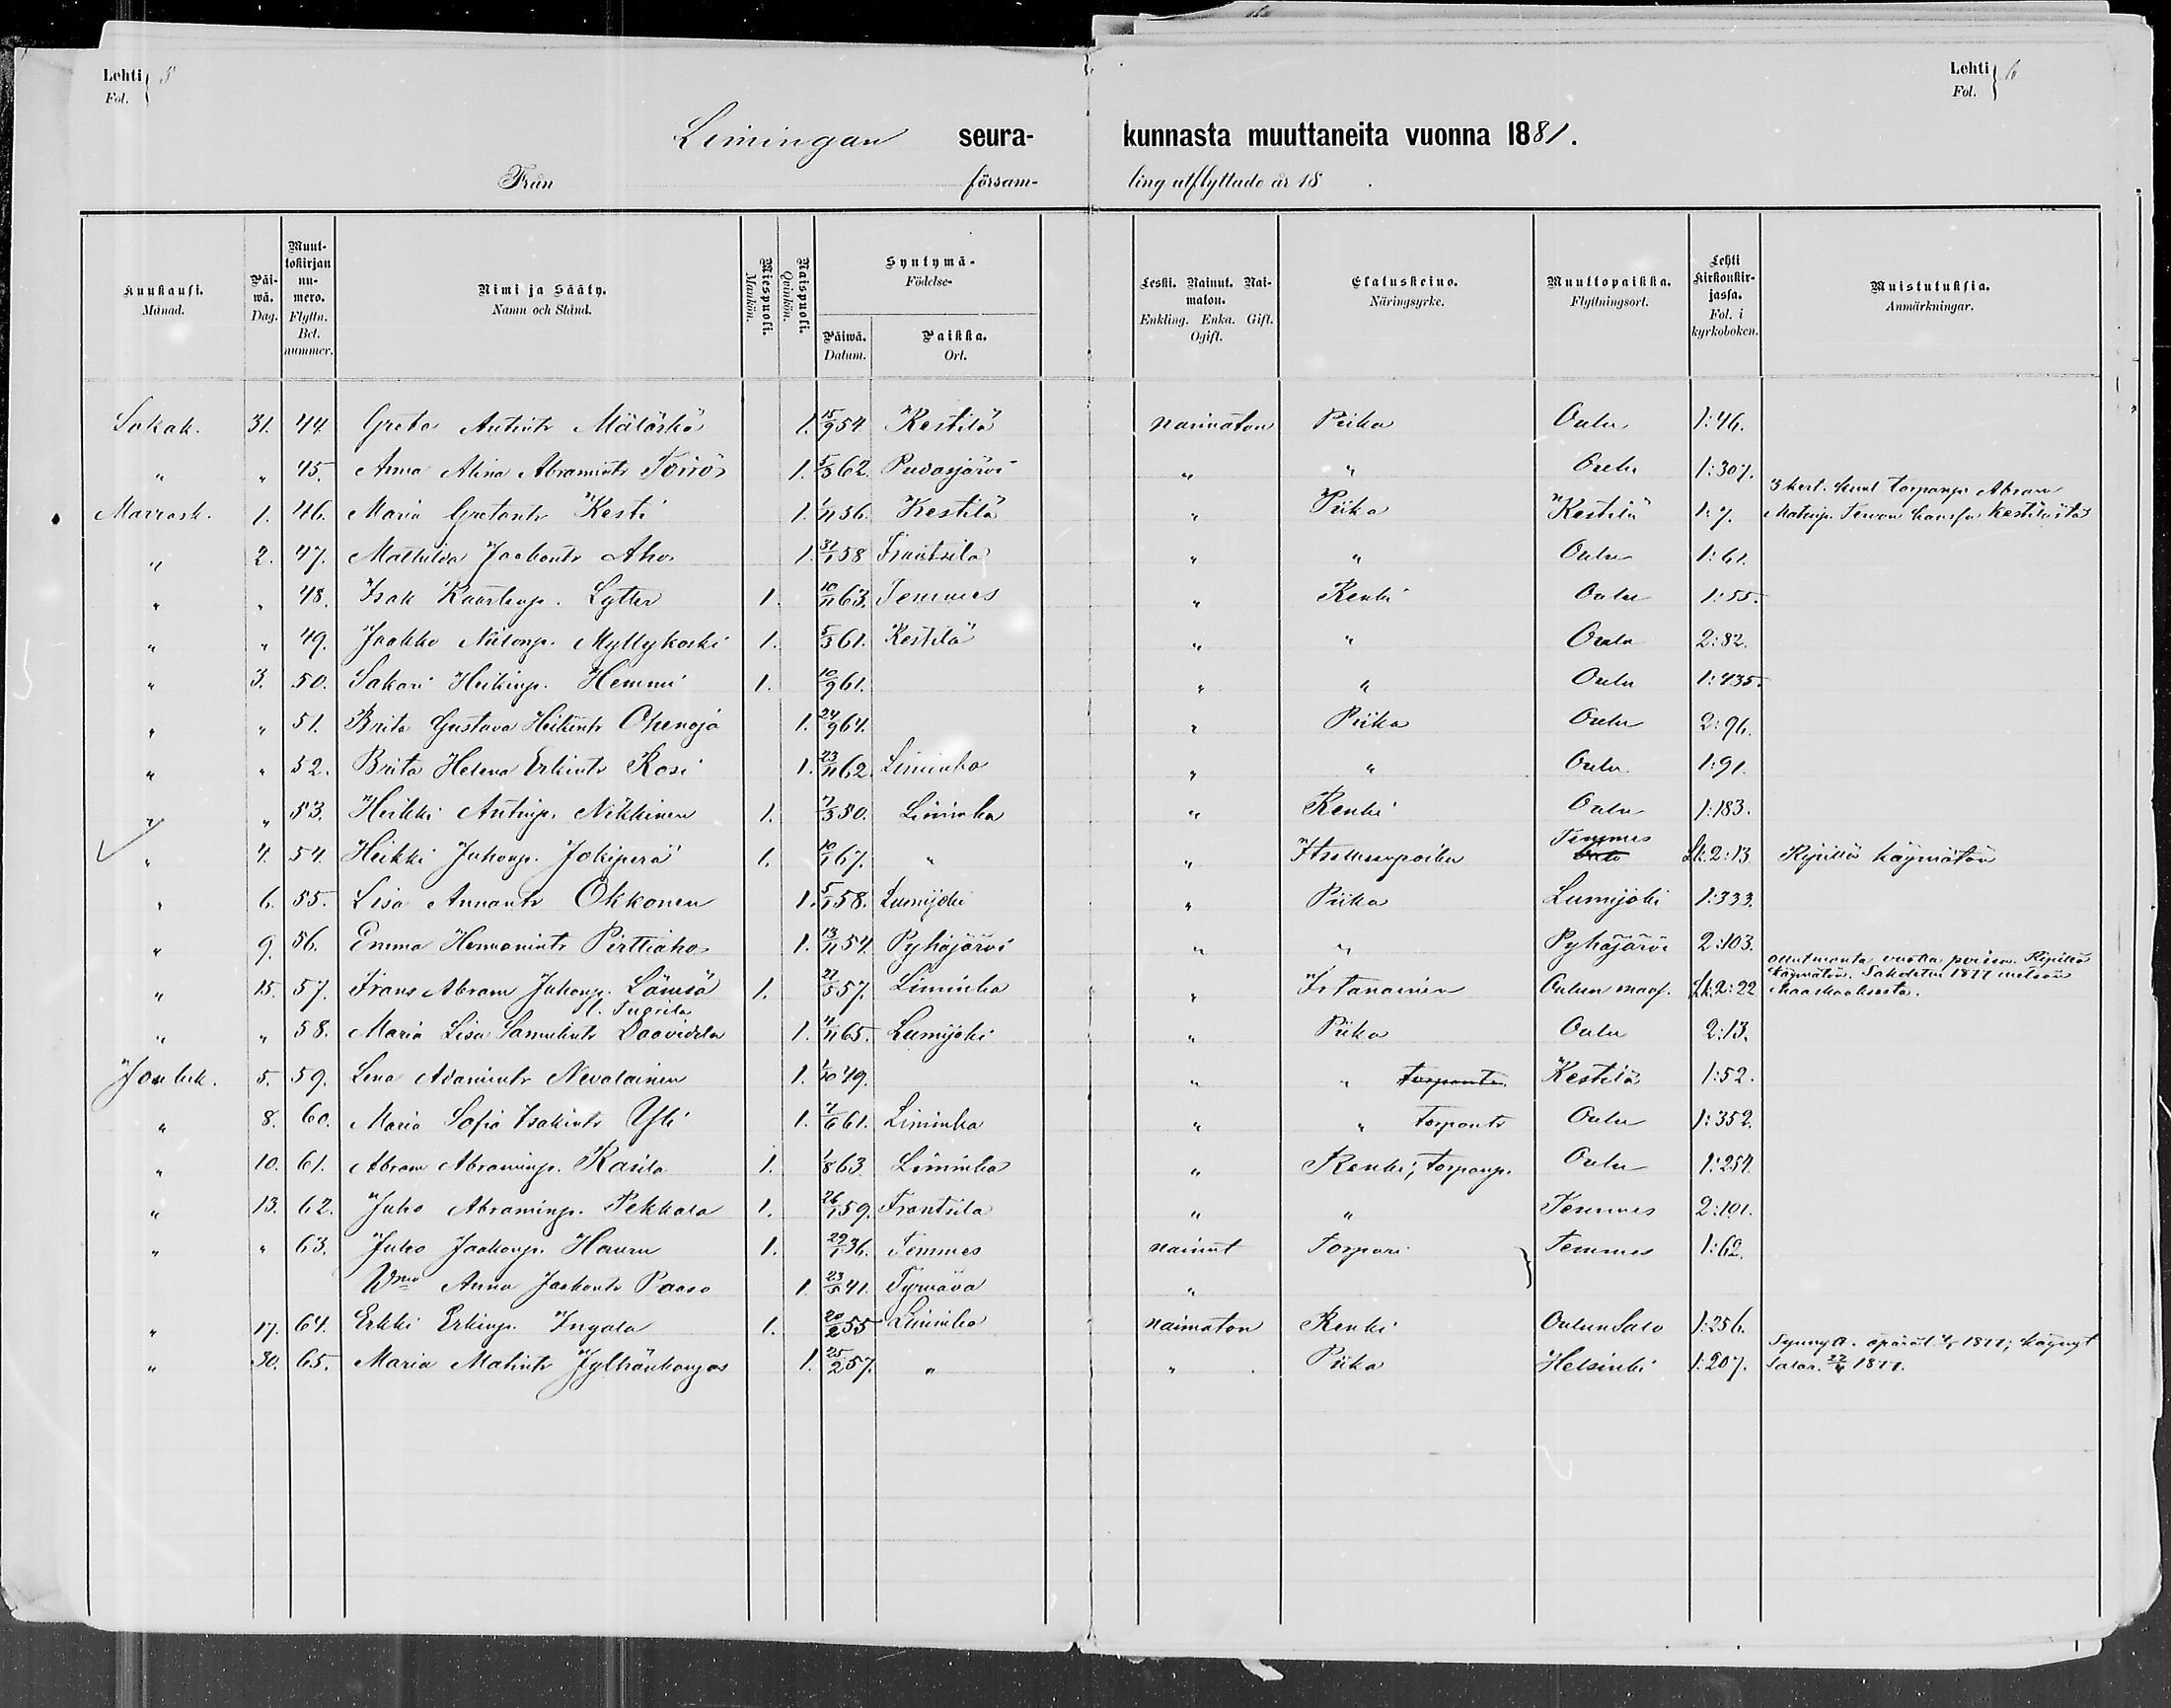 Lehti 5
Fol.
Lehti 6
Fol.
Limingan seura- kunnasta muuttaneita vuonna 1881.
Från försam- ling utflyttade år 18 .
Kuukausi. Månad. Päi-wä. Dag. Muut-tokirjan nu-mero. Flyttn. Bet. nummer. Nimi ja Sääty. Namn och Stånd. Miespuoli. Mankön. Naispuoli. Qvinkön. Syntymä- Födelse- Päiwä. Datum. Paikka. Ort. Leski. Nainut. Nai-maton. Enkling. Enka. Gift. Ogift. Elatuskeino. Näringsyrke. Muuttopaikka. Flyttningsort. Lehti Kirkonkir-jassa. Fol. i kyrkoboken. Muistutuksia. Anmärkningar.
Lokak. 31. 44. Greta Antintr Mäläskä 1. 15/9 54 Kestilä naimaton Piika Oulu 1:46.
" " 45. Anna Alina Abramintr Törrö 1. 5/3 62. Pudasjärvi " " Oulu 1:307.
Marrask. 1. 46. Maria Gretantr Kesti 1. 1/11 56. Kestilä " Piika Kestilä 1:7. 3 kert. kuul. torpanp. Abram Matinp. Tervon kanssa Kestilästä
" 2. 47. Mathilda Jaakontr Aho 1. 31/1 58 Frantsila " " Oulu 1:61.
" " 48. Isak Kaarlenp. Lytter 1. 10/11 63. Temmes " Renki Oulu 1:55.
" " 49. Jaakko Niilonp. Myllykoski 1. 5/3 61. Kestilä " " Oulu 2:82.
" 3. 50. Sakari Heikinp. Hemmi 1. 10/9 61. " " Oulu 1:435.
" " 51. Brita Gustava Heikintr Ohenoja 1. 24/9 64. " Piika Oulu 2:96.
" " 52. Brita Helena Erkintr Kosi 1. 23/11 62. Liminka " " Oulu 1:91.
" " 53. Heikki Antinp. Nikkinen 1. 7/3 30. Liminka " Renki Oulu 1:183.
" 4. 54. Heikki Juhonp. Jokiperä 1. 10/1 67. " " Itsellisenpoika Temmes Lk.2:13. Ripillä käymätön
" 6. 55. Lisa Annantr Okkonen 1. 5/1 58. Lumijoki " Piika Lumijoki 1:333.
" 9. 56. Emma Hermanintr Pirttiaho 1. 13/11 54. Pyhäjärvi " " Pyhäjärvi 2:103.
" 15. 57. Frans Abram Juhonp. Lämsä 1. 27/5 57. Liminka " Irtanainen Oulun maas. Lk.2:22 ollut monta vuotta poissa. Ripillä käymätön. Sakotettu 1877 metsän haaskauksesta.
" " 58. Maria Lisa Samulintr Daavidila l. Tuorila 1. 4/11 65. Lumijoki " Piika Oulu 2:13.
Jouluk. 5. 59. Lena Adamintr Nevalainen 1. 1/10 49. " " torpantr. Kestilä 1:52.
" 8. 60. Maria Sofia Isakintr Yli 1. 7/6 61. Liminka " " torpantr Oulu 1:352.
" 10. 61. Abram Abraminp. Rasila 1. 1/8 63. Liminka " Renki, torpanp. Oulu 1:254.
" 13. 62. Juho Abraminp. Pekkala 1. 26/1 59. Frantsila " " Temmes 2:101.
" " 63. Juho Jaakonp. Hauru 1. 29/1 36. Temmes nainut Torpari Temmes 1:62.
Wmo Anna Jaakontr Paaso 1 23/5 41. Tyrnävä "
" 17. 64. Erkki Erkinp. Ingala 1. 20/2 55 Liminka naimaton Renki Oulunsalo 1:256.
" 30. 65. Maria Matintr Jylhänkangas 1. 25/2 57. " " Piika Helsinki 1:207. Synnytt. äpärät. 1877; käynyt salar. 22/4 1877.